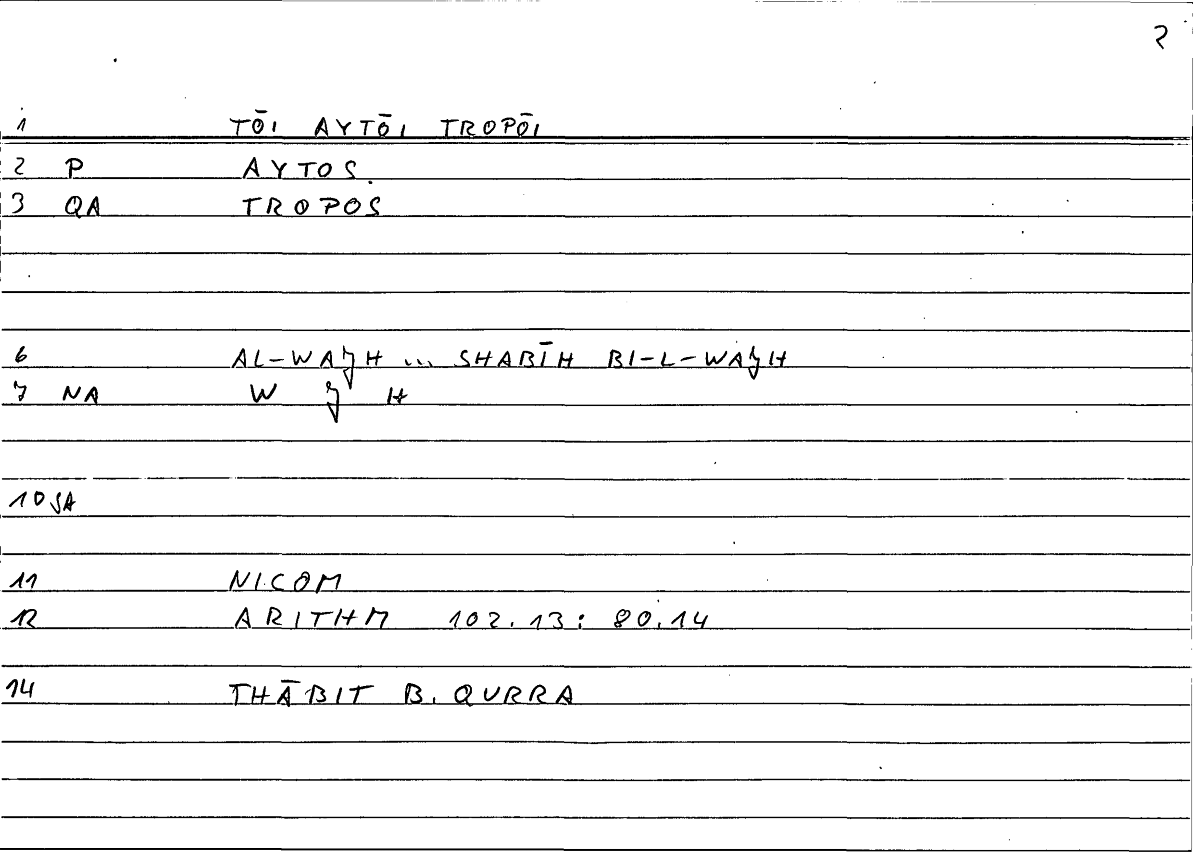 2
1 TŌI AYTŌI TROPŌI
2 P AYTOS
3 QA TROPOS
6 AL-WAJH ... SHABĪH BI-L-WAJH
7 NA W J H
10 SA
11 NICOM
12 ARITHM 102.13: 80.14
14 THĀBIT B. QURRA